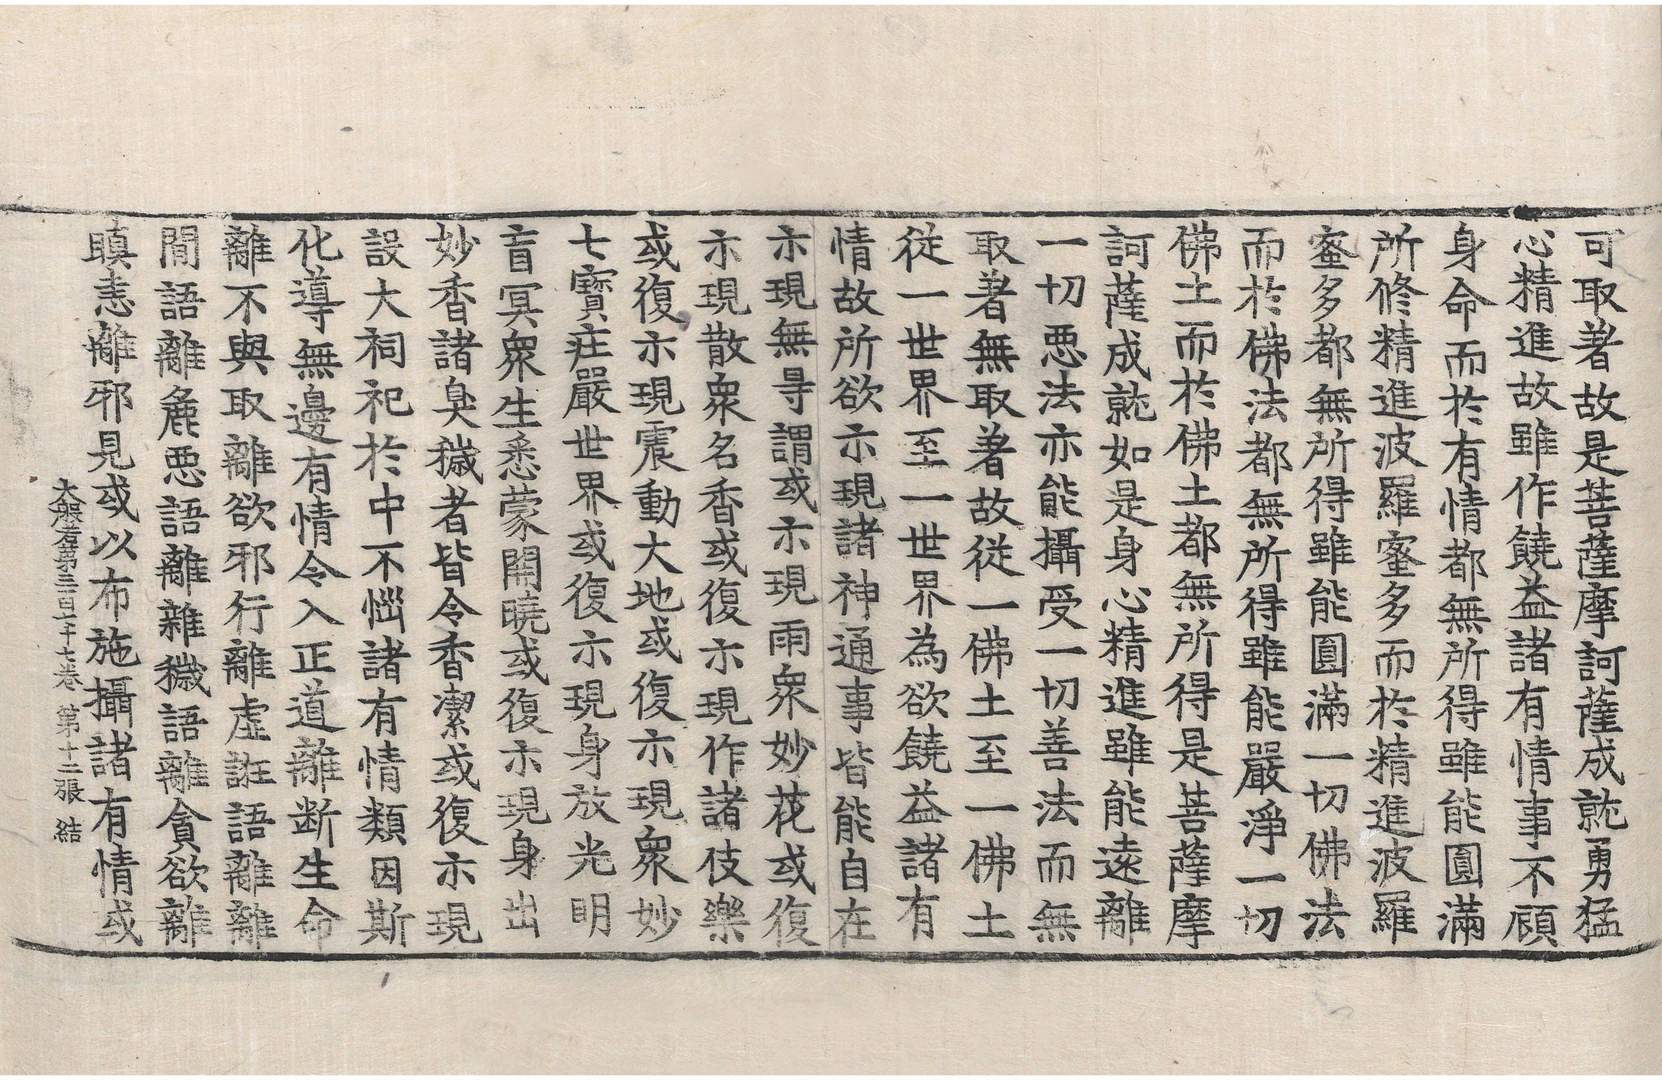 可取著故是菩薩摩訶薩成就勇猛
心精進故雖作饒益諸有情事不顧
身命而於有情都無所得雖能圓滿
所修精進波羅蜜多而於精進波羅
蜜多都無所得雖能圓滿一切佛法
而於佛法都無所得雖能嚴淨一切
佛土而於佛土都無所得是菩薩摩
訶薩成就如是身心精進雖能遠離
一切惡法亦能攝受一切善法而無
取著無取著故從一佛土至一佛土
從一世界至一世界為欲饒益諸有
情故所欲示現諸神通事皆能自在
示現無㝵謂或示現雨衆妙花或復
示現散衆名香或復示現作諸伎樂
或復示現震動大地或復示現衆妙
七寶莊嚴世界或復示現身放光明
盲冥衆生悉蒙開曉或復示現身出
妙香諸臭穢者皆令香潔或復示現
設大祠祀於中不惱諸有情類因斯
化導無邊有情令入正道離断生命
離不與取離欲邪行離虛誑語離離
間語離麁惡語離雜穢語離貪欲離
瞋恚離邪見或以布施攝諸有情或
大般若第三百七十七卷 第十二張 結